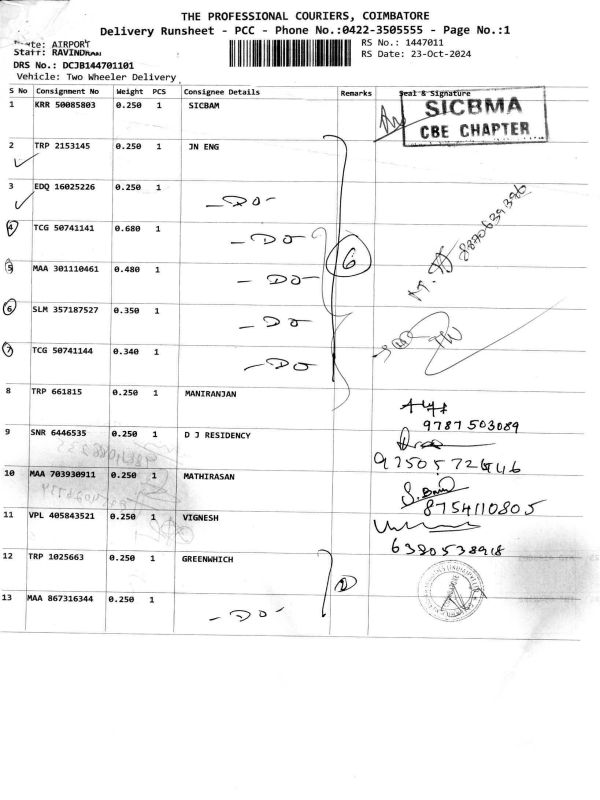 THE PROFESSIONAL COURIERS, COIMBATORE
Delivery Runsheet - PCC - Phone No.:0422-3505555 - Page No.:1
AIRPORT RS No.: 1447011
Staff: RAVINDRAN RS Date: 23-Oct-2024
DRS No.: DCJB144701101
Vehicle: Two Wheeler Delivery
S No Consignment No Weight PCS Consignee Details Remarks Seal & Signature
1 KRR 50085803 0.250 1 SICBAM SICBMA
CBE CHAPTER
2 TRP 2153145 0.250 1 JN ENG
3 EDQ 16025226 0.250 1
-DO-
8870639396
4 TCG 50741141 0.680 1
-DO-
6
5 MAA 301110461 0.480 1
-DO-
6 SLM 357187527 0.350 1
-DO-
7 TCG 50741144 0.340 1
-DO-
8 TRP 661815 0.250 1 MANIRANJAN
9787503089
9 SNR 6446535 0.250 1 D J RESIDENCY
10 MAA 703930911 0.250 1 MATHIRASAN
8754110805
11 VPL 405843521 0.250 1 VIGNESH
6380538918
12 TRP 1025663 0.250 1 GREENWHICH
2
13 MAA 867316344 1 0.250
-DO-